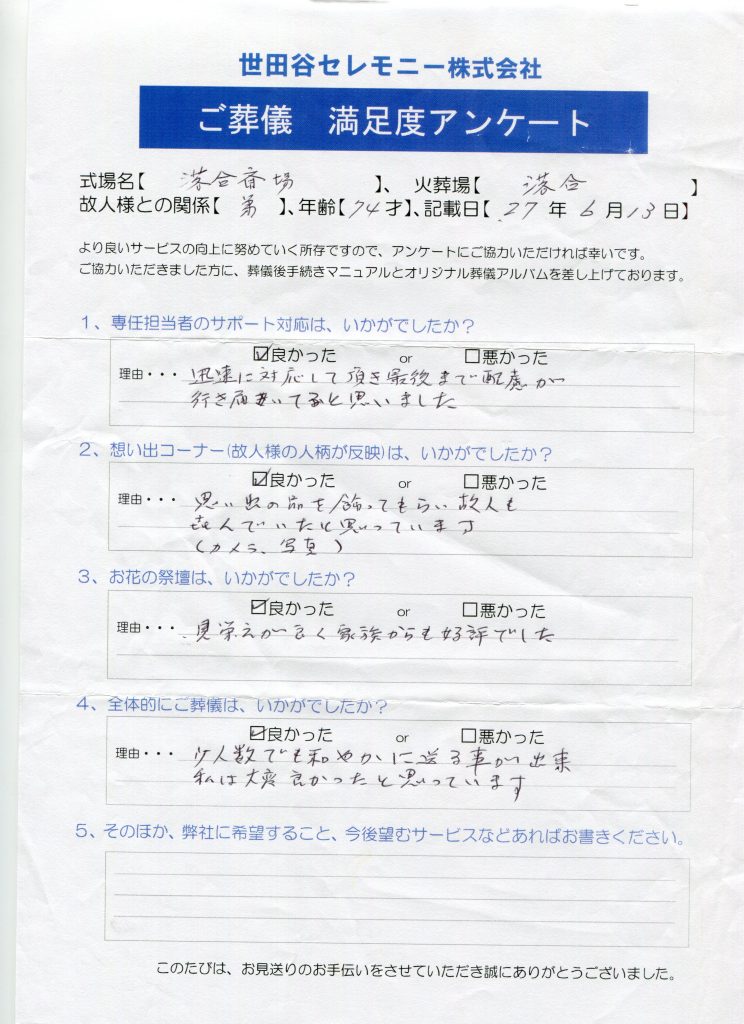 世田谷セレモニー株式会社
ご葬儀 満足度アンケート
式場名【 落合斎場 】、 火葬場【 落合 】
故人様との関係【 弟 】、年齢【74才】、記載日【 27 年 6 月 13 日】
より良いサービスの向上に努めていく所存ですので、アンケートにご協力いただければ幸いです。
ご協力いただきました方に、葬儀後手続きマニュアルとオリジナル葬儀アルバムを差し上げております。
1、専任担当者のサポート対応は、いかがでしたか？
☑良かった or □悪かった
理由・・・ 迅速に対応して頂き最後まで配慮が
行き届いてると思いました
2、想い出コーナー(故人様の人柄が反映)は、いかがでしたか？
☑良かった or □悪かった
理由・・・ 思い出の品を飾ってもらい故人も
喜んでいたと思っています
(カメラ、写真)
3、お花の祭壇は、いかがでしたか？
☑良かった or □悪かった
理由・・・ 見栄えが良く家族からも好評でした
4、全体的にご葬儀は、いかがでしたか？
☑良かった or □悪かった
理由・・・ 少人数でも和やかに送る事が出来
私は大変良かったと思っています
5、そのほか、弊社に希望すること、今後望むサービスなどあればお書きください。
このたびは、お見送りのお手伝いをさせていただき誠にありがとうございました。